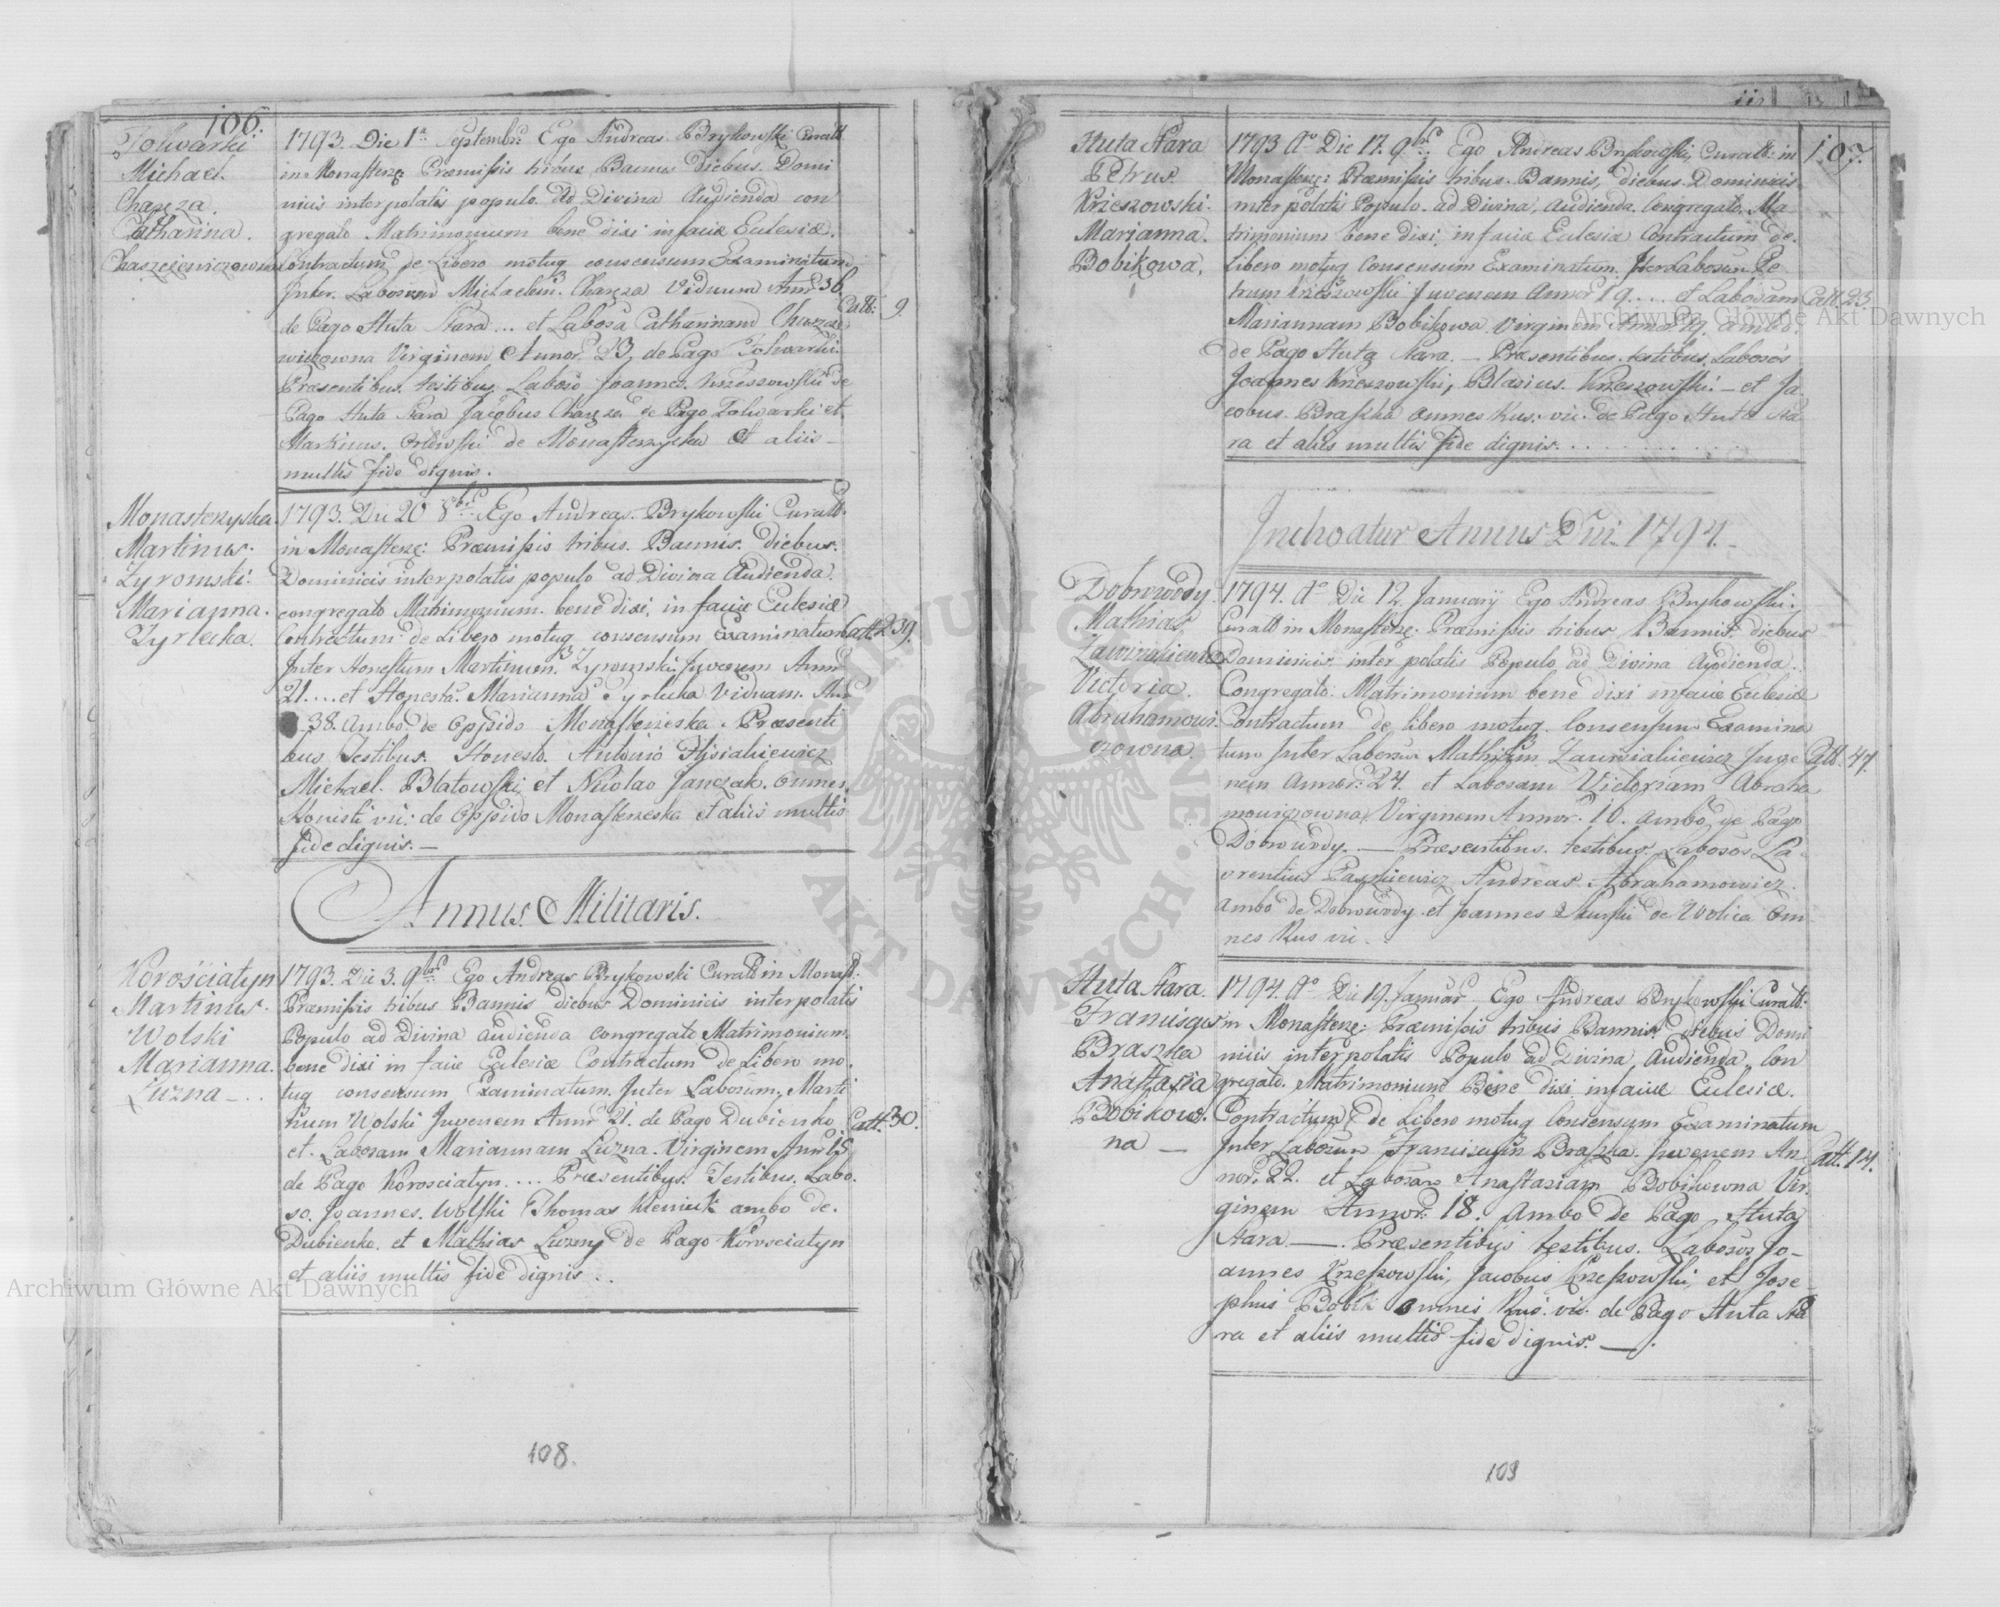 106.
Folwarki
Michael.
Charęza.
Catharina.
Chaszczewiczowna
1793. Die 1a Septembr: Ego Andreas Brykowski Curatt
in Monasterz: Præmissis tribus Bannis Diebus. Domi
nicis interpolatis populo ad Divina Audienda con
gregato Matrimonium bene dixi in facie Eclesiæ.
Contractum de Libero motuq consensum Examinatum
Inter. Laborum Michaelem Charęza Viduum Annor 36.
de Pago Huta Stara... et Labosa Catharinam
wiczowna Virginem Annor. 23, de Pago Folwarki.
Præsentibus. testibus. Laboso Joannes. Krzeszowski de
Pago Huta Stara Jacobus Charęza de Pago Folwarki et
Martinus. Orłowski de Monasterzyska et aliis
multis fide dignis.
Catt: 9.
Monasterzyska
Martinus.
Zyromski.
Marianna.
Tyrlecka.
1793. Die 20 8bris Ego Andreas. Brykowski Curatt.
in Monasterz: Præmissis tribus. Bannis. diebus.
Dominicis interpolatis populo ad Divina Audienda.
congregato Matrimonium. bene dixi, in facie Eclesiæ
Contractum de Libero motuq consensum Examinatum
Inter Honestum Martinum. Zyromski Juvenem Annor
21.... et Honesta. Marianna Tyrlecka Viduam. Ann
38. Ambo de Oppido Monasterzeska Præsenti
bus Testibus. Honesto. Antonio
Michael. Blatowski et Nicolao Janczak. Omnes
Honesti vii: de Oppido Monasterzeska et aliis multis
fide dignis. —
Catt. 239.
Annus Militaris.
Korościatyn
Martinus.
Wolski
Marianna.
Luzna —..
1793. Die 3. 9bris Ego Andreas Brykowski Curatt in Monast:
Præmissis tribus Bannis diebus Dominicis interpolatis
Populo ad Divina audienda congregato Matrimonium.
bene dixi in facie Eclesiæ Contractum de Libero mo-
tuq consensum Examinatum. Inter Laborum, Marti
num Wolski Juvenem Annor 21. de Pago Dubienko
et. Labosam Mariannam Luzna. Virginem Ann 15
de Pago Korosciatyn.... Præsentibus. Testibus. Labo.
so. Joannes. Wolski Thomas ambo de.
Dubienko. et Mathias Luzny de Pago Korosciatyn
et aliis multis fide dignis...
Catt. 30.
108.
107.
Huta Stara
Petrus
Krzeszowski.
Marianna.
Bobikowa,
1793 Ao Die 17. 9bris Ego Andreas Brykowski, Curatt: in
Monasterz: Præmissis tribus. Bannis, diebus Dominicis
interpolatis Populo. ad Divina, audienda. Congregato. Ma
trimonium bene dixi, in facie Eclesia Contractum de.
Libero motuq Consensum Examinatum. Inter Labosum Pe
trum Krzeszowski Juvenem Annor 19.... et Labosam
Mariannam Bobikowa Virginem Annor 19. ambo,
de Pago Huta Stara. — Præsentibus. testibus. Labosos
Joannes Krzeszowski, Blasius. Krzeszowski. — et Ja
cobus. Braszka omnes Rus. vii. de Pago Huta Sta
ra et aliis multis fide dignis............
Catt. 23
Inchoatur Annus Dni. 1794.
Dobrowody.
Mathias
Victoria.
Abrahamowi.
czowna.
1794. Ao Die 12. January Ego Andreas Brykowski.
Curatt in Monasterz: Præmissis tribus Bannis, diebus
Dominicis inter polatis Populo ad Divina Audienda..
Congregato. Matrimonium bene dixi in facie Eclesiæ
Contractum de libero motuq. Consensum Examina
tum Inter Labosum Mathiam. Juve
nem Annor. 24. et Labosam Victoriam Abraha
mowiczowna, Virginem Annor. 10. ambo de Pago
Dobrowody. — Præsentibus. testibus. Labosos. La-
orentius Paszkiewicz Andreas. Abrahamowicz.
Ambo de Dobrowody et Joannes Skurski de Wolica Om
nes Rus vii.
Catt. 47.
Huta Stara.
Franciscus
Braszka
Anastasia
Bobikow.
na —
1794. Ao Die 19. Januar Ego Andreas Brykowski Curatt.
in Monasterz: Præmissis tribus Bannis. diebus Domi
nicis interpolatis Populo ad Divina Audienda, Con
gregato. Matrimonium Bene dixi in facie Eclesiæ.
Contractum de Libero motuq Consensum Examinatum
Inter Labosum Franciscum Braszka. Juvenem An-
nor. 22. et Labosam Anastasiam Bobikowna Vir.
ginem Annor. 18. Ambo de Pago Huta
Stara —. Præsentibus testibus. Labosos Jo-
annes Krzeszowski, Jacobus Krzeszowski, et Jose-
phus Bobik omnes Rus. vii. de Pago Huta Sta
ra et aliis multis fide dignis. —.
Catt. 14.
109
Archiwum Główne Akt Dawnych
Archiwum Główne Akt Dawnych
ARCHIWUM GŁÓWNE · AKT DAWNYCH ·